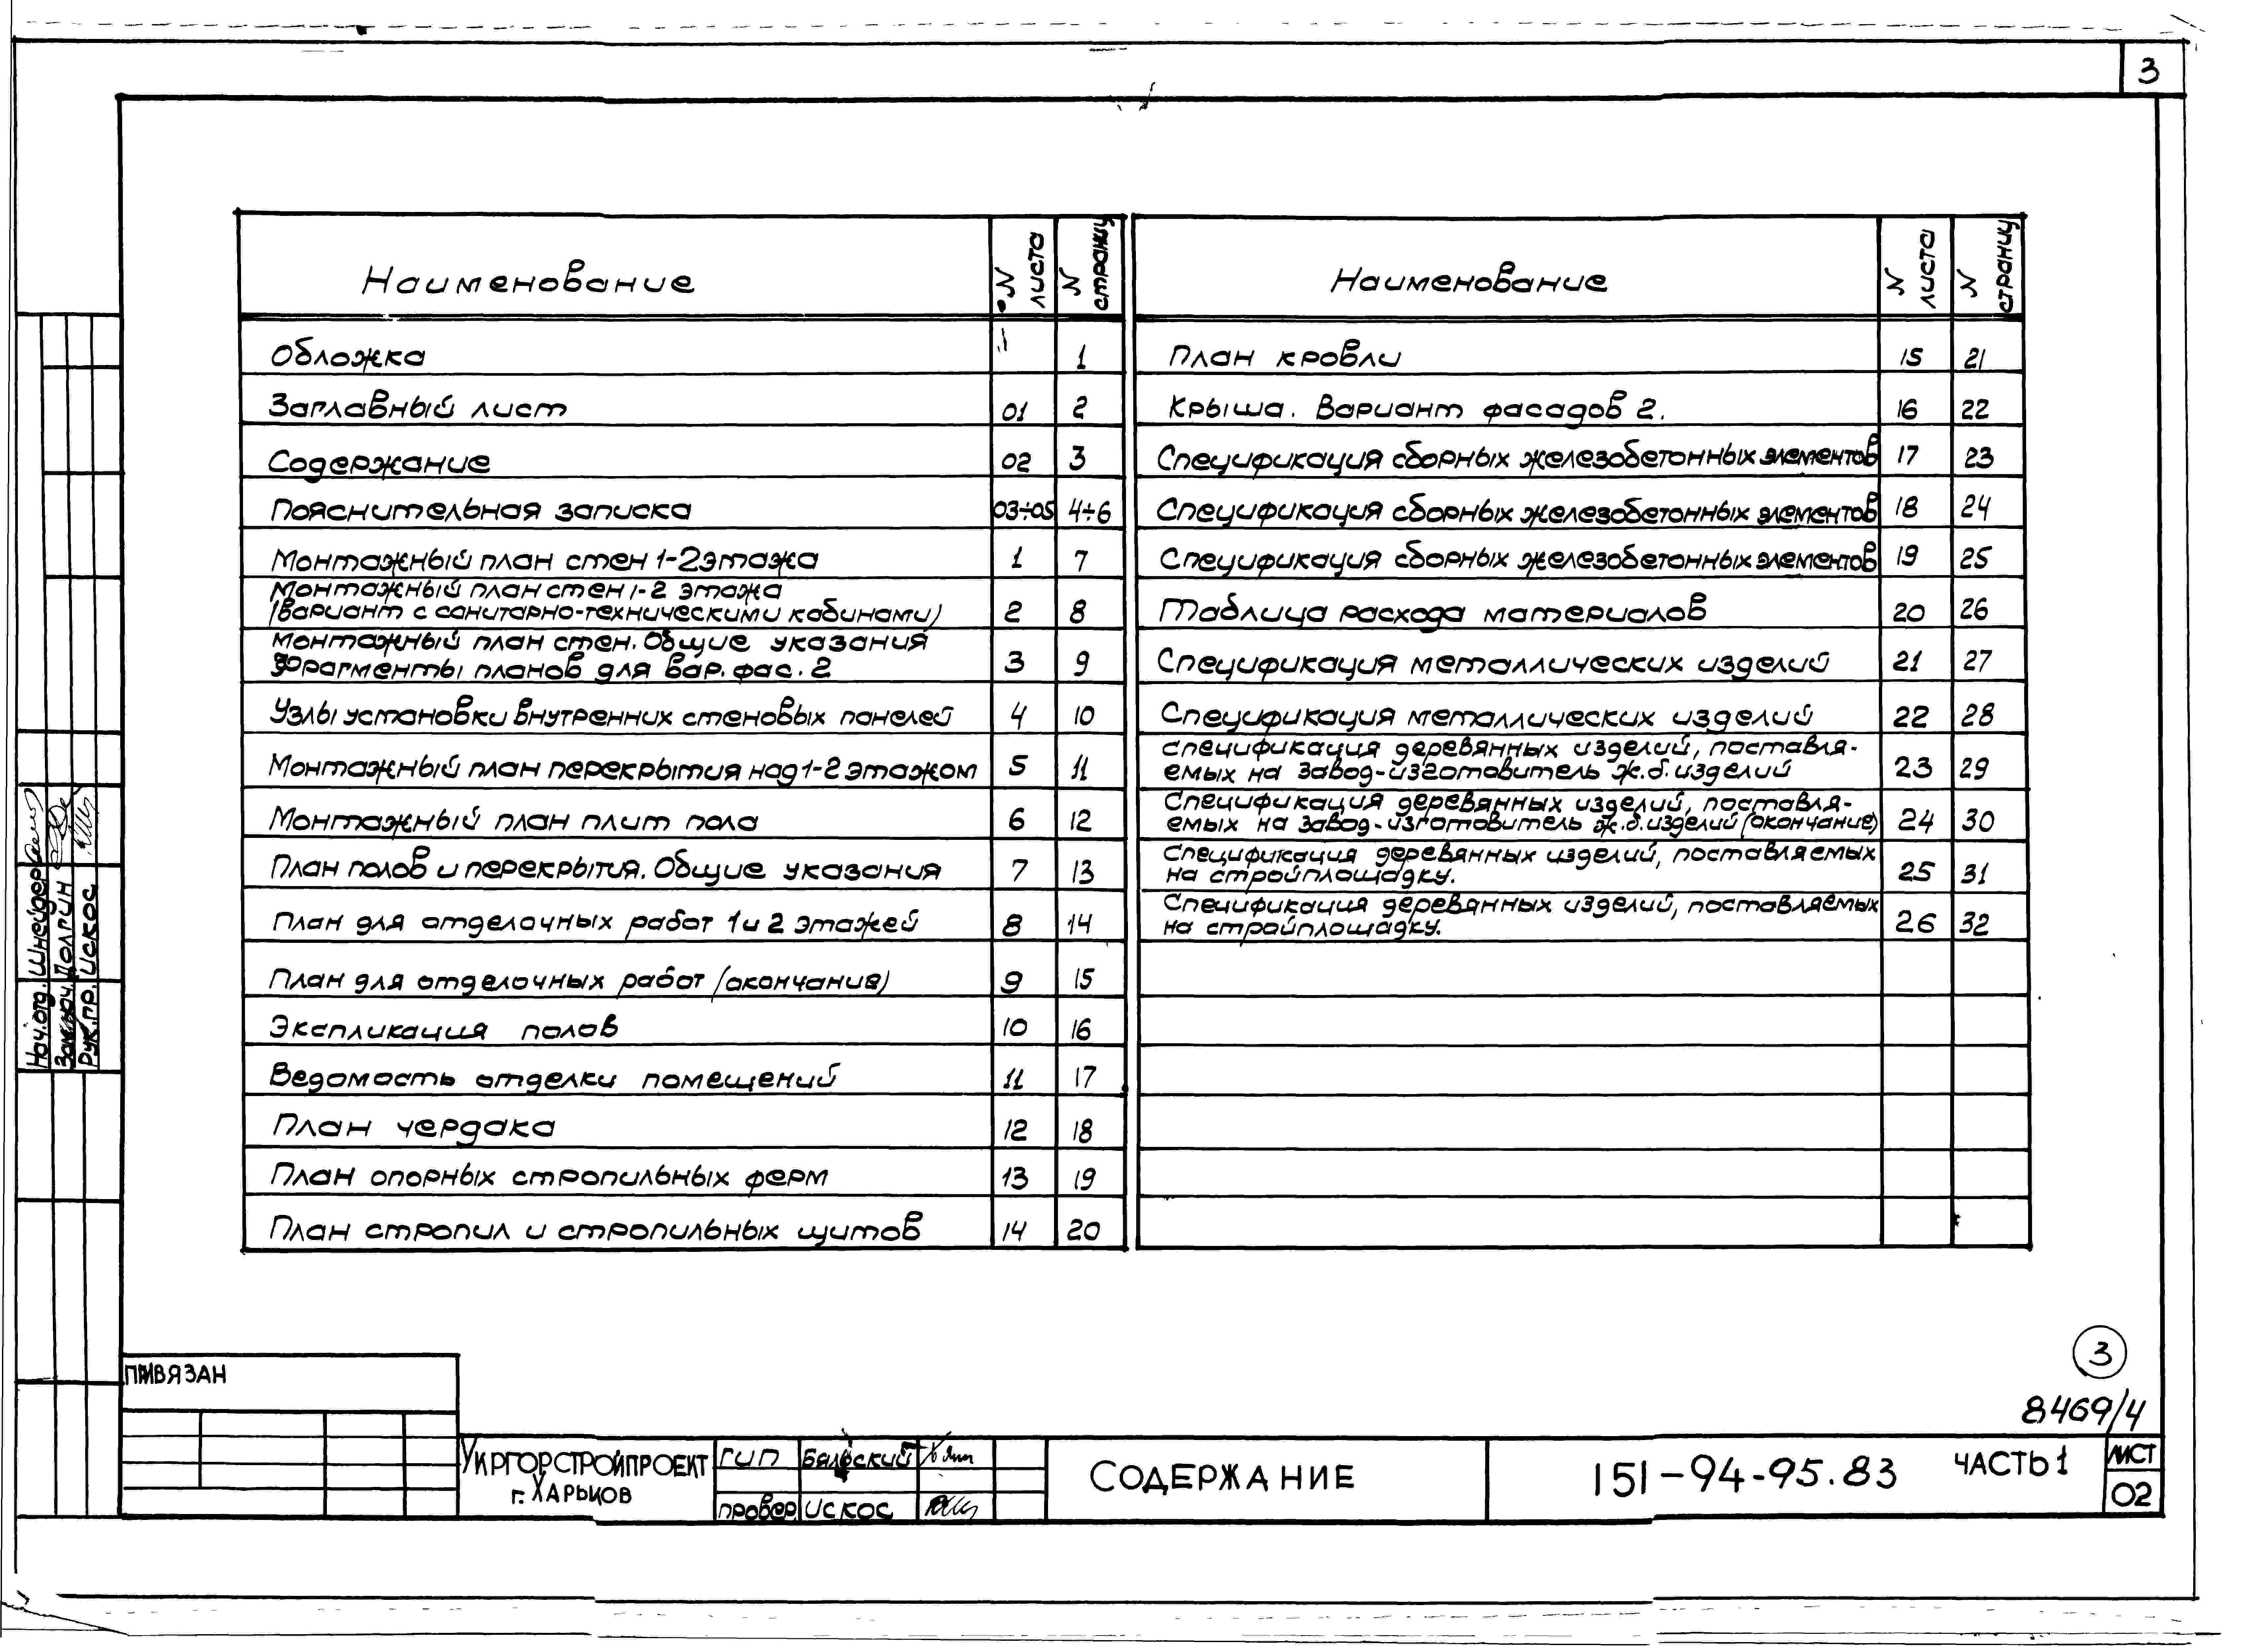 3
Наименование
N листа
N страниц
Обложка 1
Заглавный лист 01 2
Содержание 02 3
Пояснительная записка 03÷05 4÷6
Монтажный план стен 1-2 этажа 1 7
Монтажный план стен 1-2 этажа
(вариант с санитарно-техническими кабинами) 2 8
Монтажный план стен. Общие указания
Фрагменты планов для вар. фас. 2 3 9
Узлы установки внутренних стеновых панелей 4 10
Монтажный план перекрытия над 1-2 этажом 5 11
Монтажный план плит пола 6 12
План полов и перекрытия. Общие указания 7 13
План для отделочных работ 1 и 2 этажей 8 14
План для отделочных работ (окончание) 9 15
Экспликация полов 10 16
Ведомость отделки помещений 11 17
План чердака 12 18
План опорных стропильных ферм 13 19
План стропил и стропильных щитов 14 20
Наименование
N листа
N страниц
План кровли 15 21
Крыша. Вариант фасадов 2. 16 22
Спецификация сборных железобетонных элементов 17 23
Спецификация сборных железобетонных элементов 18 24
Спецификация сборных железобетонных элементов 19 25
Таблица расхода материалов 20 26
Спецификация металлических изделий 21 27
Спецификация металлических изделий 22 28
Спецификация деревянных изделий, поставля-
емых на завод-изготовитель ж.б. изделий 23 29
Спецификация деревянных изделий, поставля-
емых на завод-изготовитель ж.б. изделий (окончание) 24 30
Спецификация деревянных изделий, поставляемых
на стройплощадку. 25 31
Спецификация деревянных изделий, поставляемых
на стройплощадку. 26 32
Нач.отд. Шнейдер
Зам.нач. Долгин
Рук.пр. Искос
3
8469/4
ПРИВЯЗАН
Укргорстройпроект
г. Харьков
ГИП
провер. Искос
Содержание
151-94-95.83 часть 1
лист
02